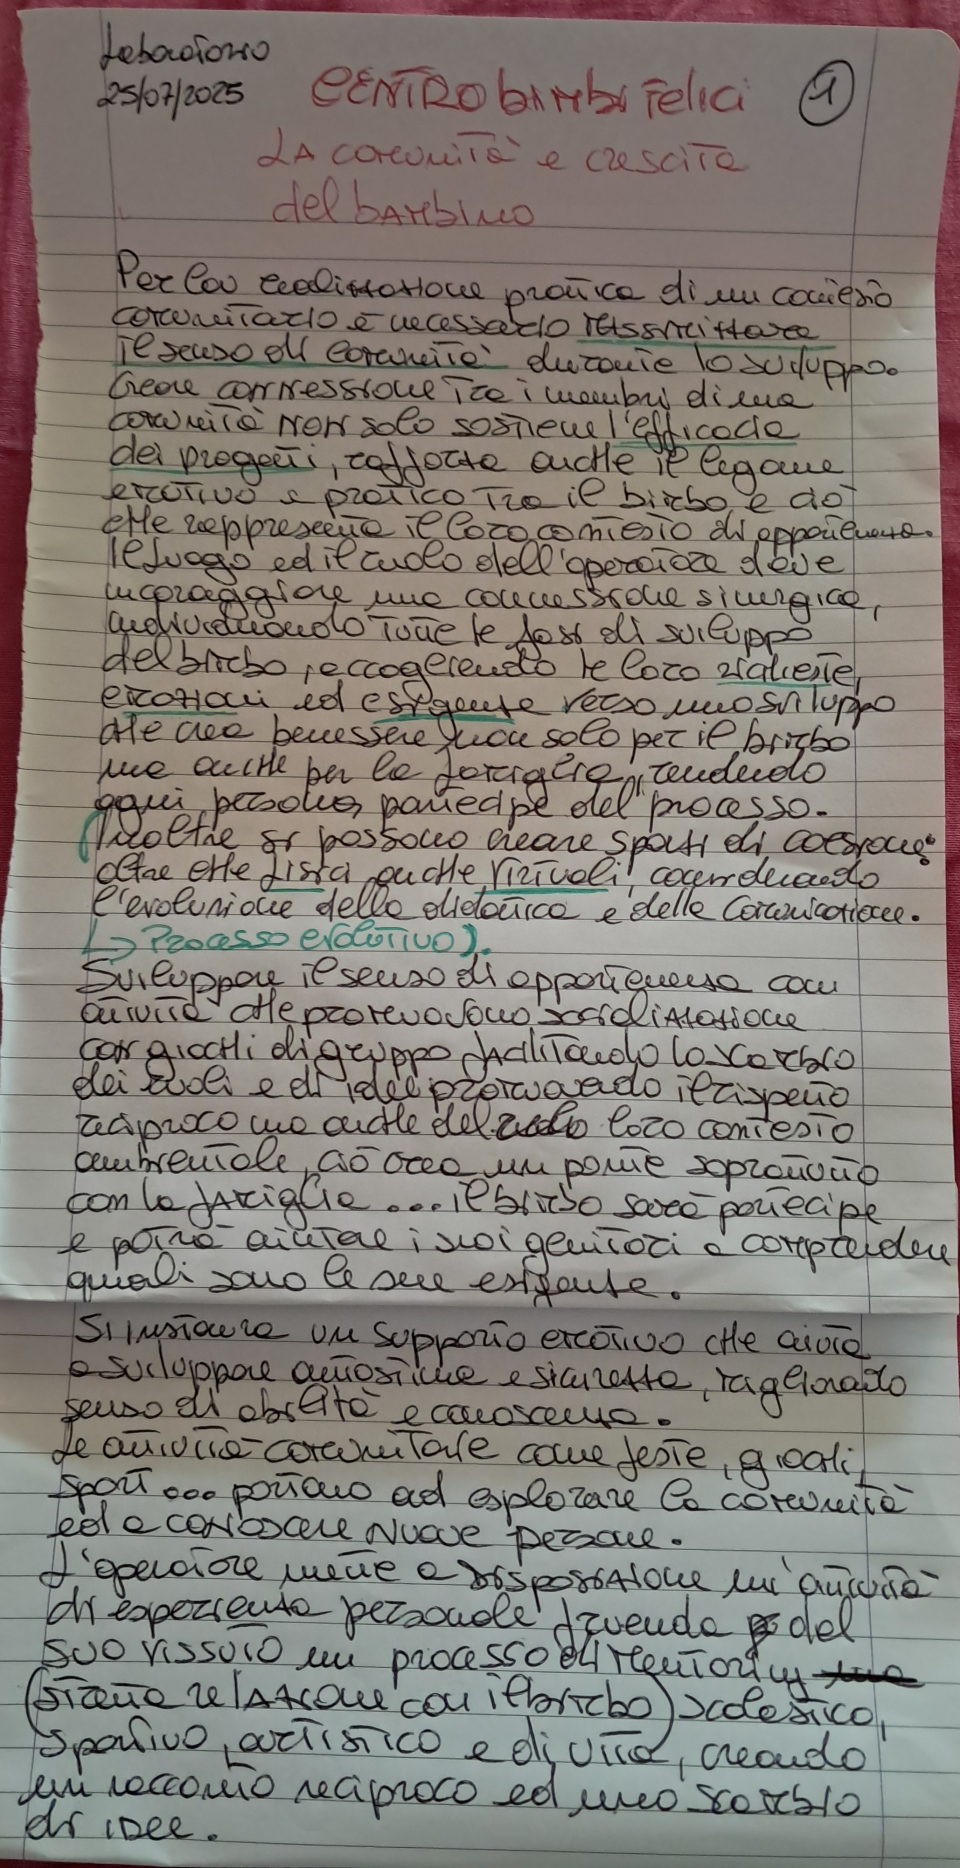 Laboratorio
25/07/2025
CENTRO bambi Felici
1
LA comunità e crescita
del bambino
Per la realizzazione pratica di un contesto
comunitario è necessario
il senso di comunità durante lo sviluppo.
Creare connessione tra i membri di una
comunità non solo sostiene l'efficacia
dei progetti, rafforza anche il legame
emotivo e pratico tra il bimbo e ciò
che rappresenta il loro contesto di appartenenza.
Il luogo ed il ruolo dell'operatore deve
incoraggiare una connessione sinergica,
individuando tutte le fasi di sviluppo
del bimbo, accogliendo le loro richieste,
emozioni ed esigenze verso uno sviluppo
che crea benessere non solo per il bimbo
ma anche per la famiglia, rendendo
ogni persona partecipe del processo.
(Inoltre si possono creare spazi di coesione
oltre che fisici anche virtuali, coordinando
l'evoluzione della didattica e della comunicazione.
↳ Processo evolutivo).
Sviluppare il senso di appartenenza con
attività che promuovono socializzazione
con giochi di gruppo facilitando lo scambio
dei ruoli e di idee promuovendo il rispetto
reciproco ma anche del loro contesto
ambientale, ciò crea un ponte soprattutto
con la famiglia ... il bimbo sarà partecipe
e potrà aiutare i suoi genitori a comprendere
quali sono le sue esigenze.
Si instaura un supporto emotivo che aiuta
a sviluppare autostima e sicurezza, migliorando
senso di abilità e conoscenza.
Le attività comunitarie come feste, giochi,
sport ... portano ad esplorare la comunità
ed a conoscere nuove persone.
L'operatore mette a disposizione un'attività
di esperienza personale facendo del
suo vissuto un processo di mentoring
(stretta relazione con il bimbo) scolastico,
sportivo, artistico e di vita, creando
un racconto reciproco ed uno scambio
di idee.